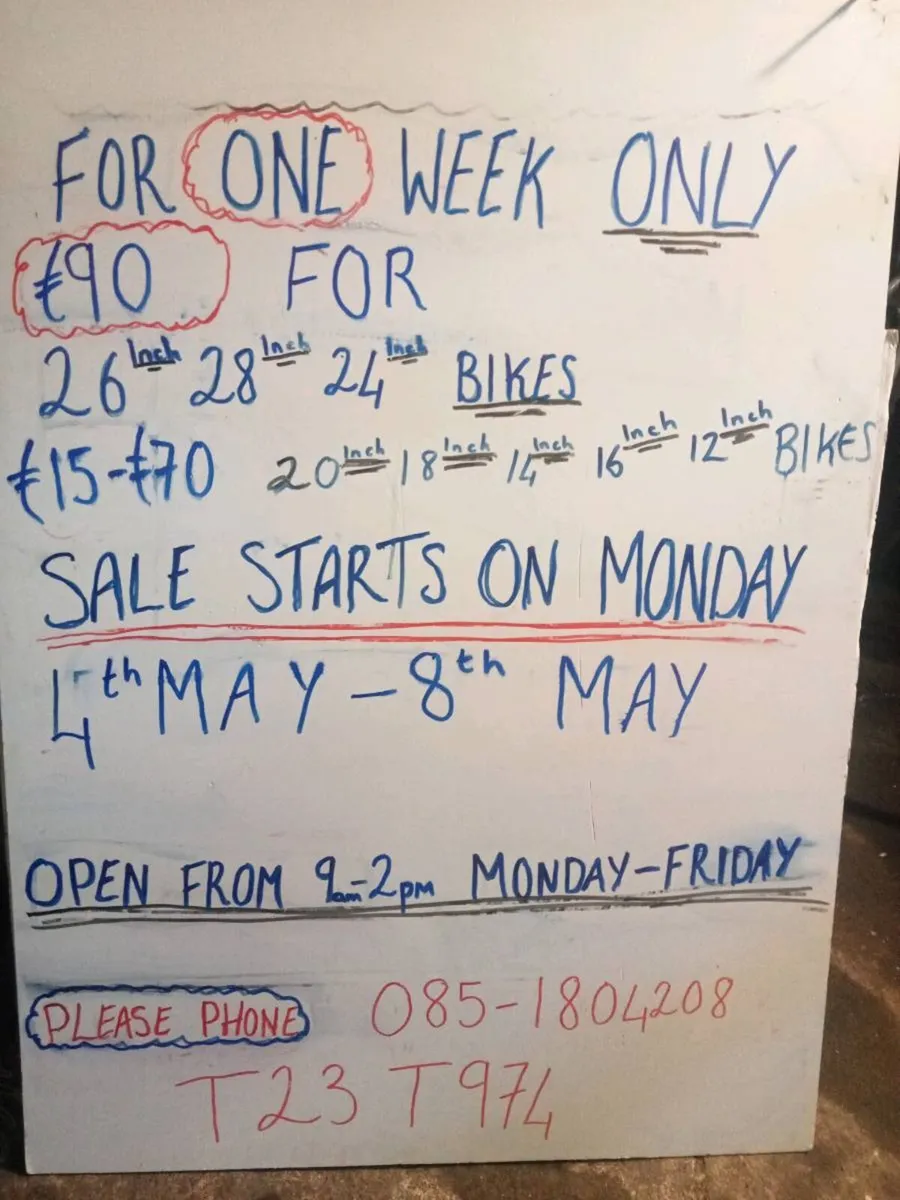 FOR ONE WEEK ONLY
€90 FOR
26 Inch 28 Inch 24 Inch BIKES
€15-€70 20 Inch 18 Inch 14 Inch 16 Inch 12 Inch BIKES
SALE STARTS ON MONDAY
4th MAY - 8th MAY
OPEN FROM 9am-2pm MONDAY-FRIDAY
PLEASE PHONE 085-1804208
T23 T974